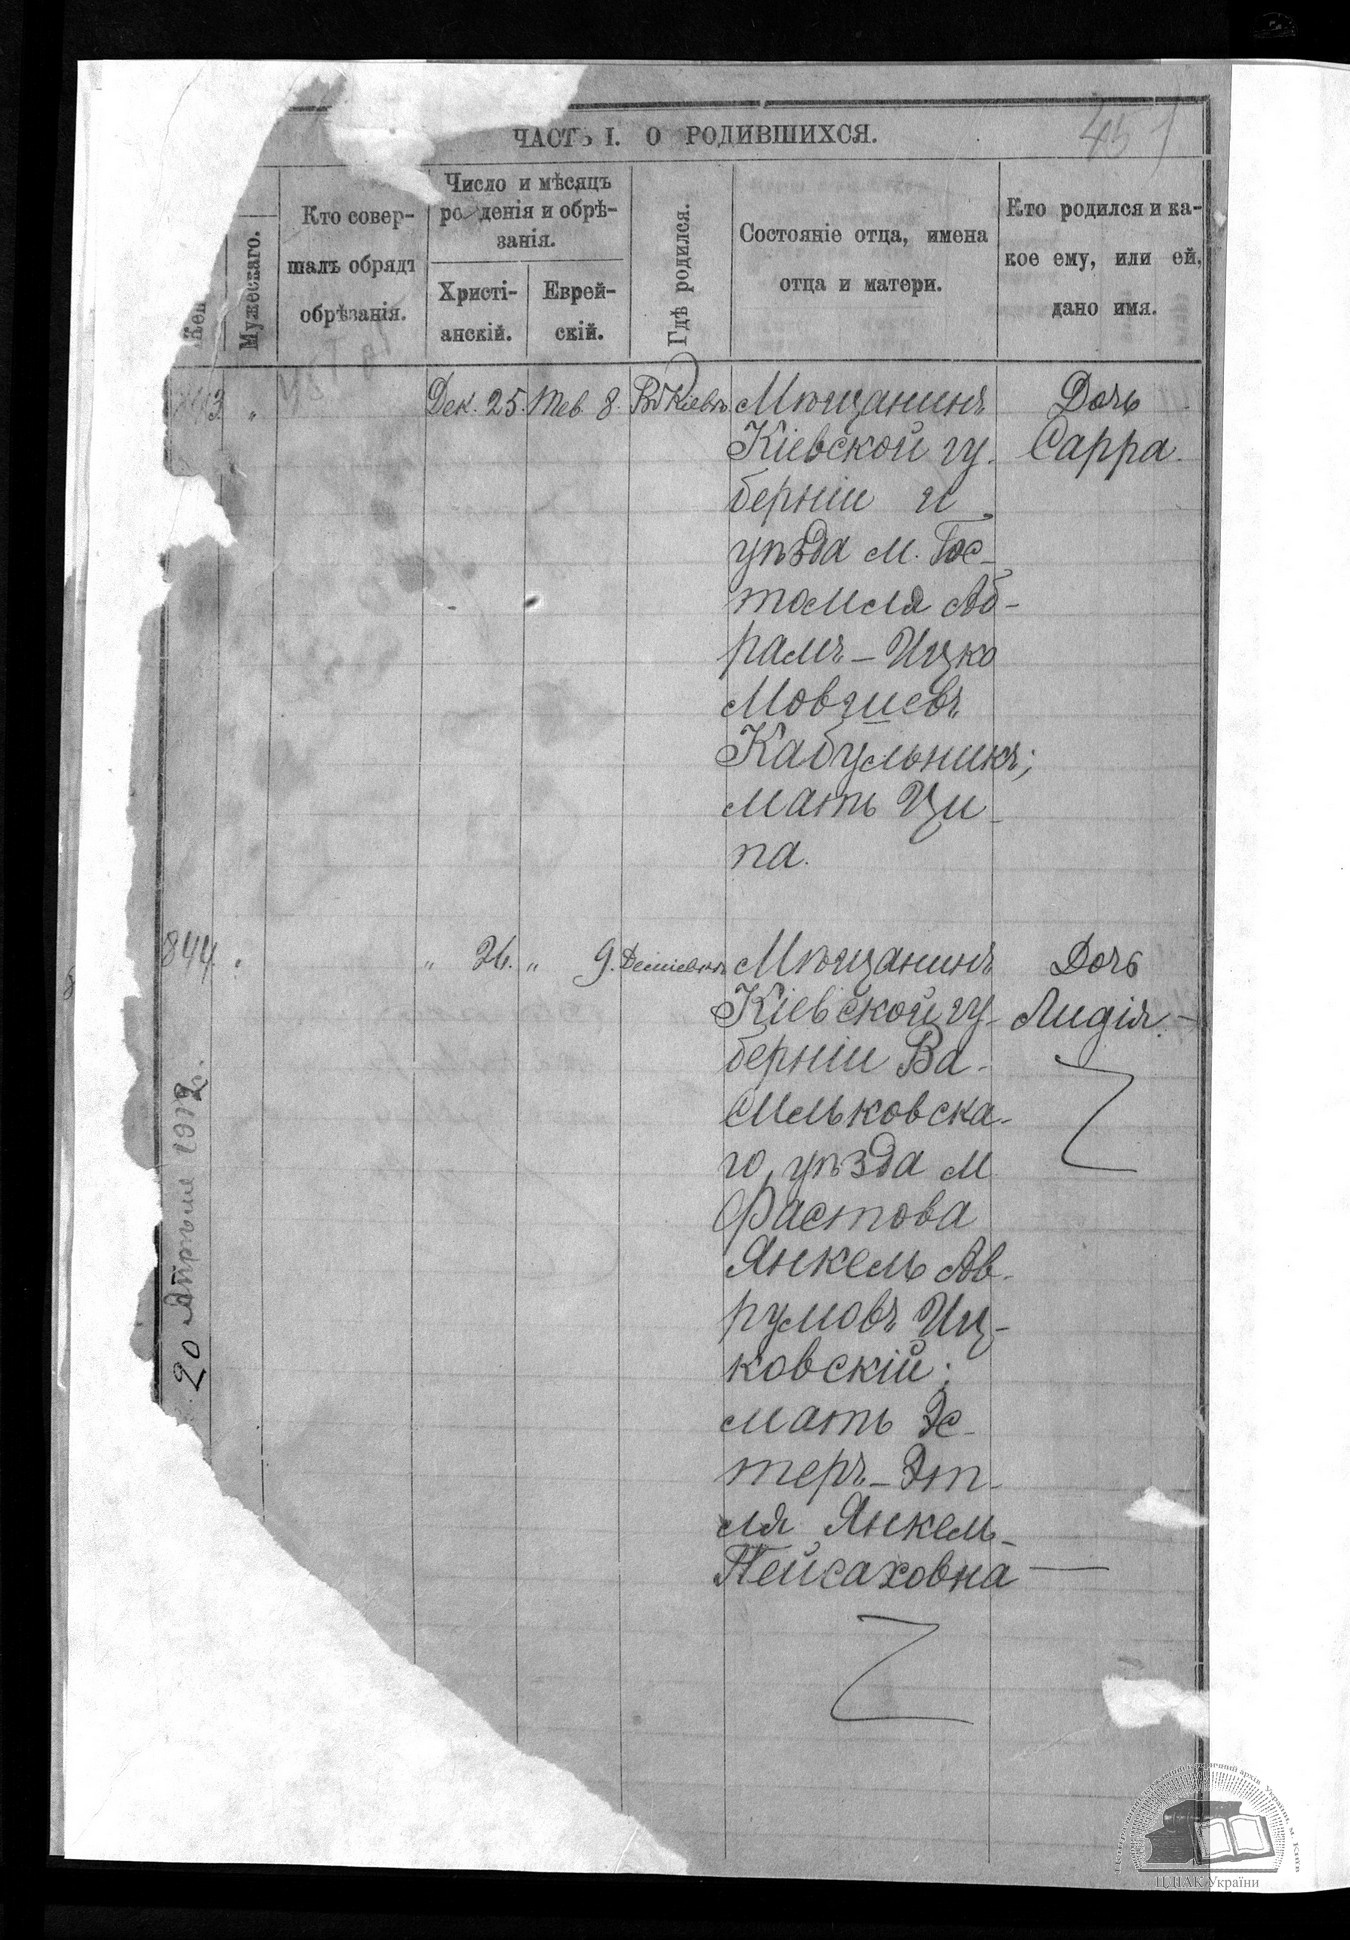 451
ЧАСТЬ I. О РОДИВШИХСЯ.
Жен
Мужескаго.
Кто совер-
шалъ обрядъ
обрѣзанія.
Число и мѣсяцъ
рожденія и обрѣ-
занія.
Христі-
анскій.
Еврей-
скій.
Гдѣ родился.
Состояніе отца, имена
отца и матери.
Кто родился и ка-
кое ему, или ей,
дано имя.
843 " Дек. 25. Тев. 8. Въ Кіевѣ.
Мѣщанинъ
Кіевской гу-
берніи и
уѣзда м. Гос-
томля Аб-
рамъ-Ицко
Мовшевъ
Кабульникъ;
мать Ци-
па.
Дочь
Сарра.
844. " " 26. " 9. Деміевкѣ
Мѣщанинъ
Кіевской гу-
берніи Ва-
сильковска-
го уѣзда м
Фастова
Янкель Ав-
румовъ Иц-
ковскій;
мать Эс-
теръ-Эт-
ля Янкель-
Пейсаховна
Дочь
Лидія.
20 Апрѣля 1912.
Центральний державний історичний архів України, м. Київ
ЦДІАК України